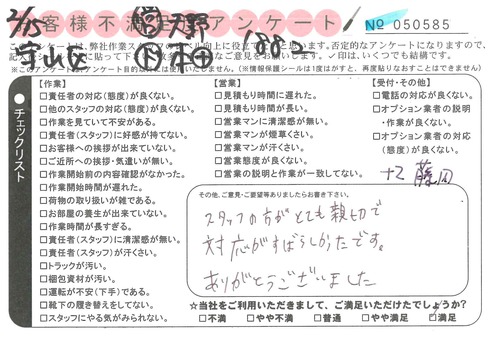 2/15 お客様不満足アンケート № 050585
営 天野 188-
宮山 下 本田
このアンケートは、弊社作業スタッフのレベル向上に役立
否定的なアンケートになりますので、
ご意見をお願いします。✓印は、いくつでも結構です。
(※情報保護シールは1度はがすと、再度貼りなおすことはできません)
チェックリスト
【作業】
□責任者の対応(態度)が良くない。
□他のスタッフの対応(態度)が良くない。
□作業を見ていて不安がある。
□責任者(スタッフ)に好感が持てない。
□お客様への挨拶が出来ていない。
□ご近所への挨拶・気遣いが無い。
□作業開始前の内容確認がなかった。
□作業開始時間が遅れた。
□荷物の取り扱いが雑である。
□お部屋の養生が出来ていない。
□作業時間が長すぎる。
□責任者(スタッフ)に清潔感が無い。
□責任者(スタッフ)が汗くさい。
□トラックが汚い。
□梱包資材が汚い。
□運転が不安(下手)である。
□靴下の履き替えをしてない。
□スタッフにやる気がみられない。
【営業】
□見積もり時間に遅れた。
□見積もり時間が長い。
□営業マンに清潔感が無い。
□営業マンが煙草くさい。
□営業マンが汗くさい。
□営業態度が良くない。
□営業の説明と作業が一致してない。
【受付・その他】
□電話の対応が良くない。
□オプション業者の説明
・作業が良くない。
□オプション業者の対応
(態度)が良くない。
その他、ご意見・ご要望等ありましたらお書き下さい。
スタッフの方がとても親切で
対応がすばらしかったです。
ありがとうございました
☆当社をご利用いただきまして、ご満足いただけたでしょうか?
□不満 □やや不満 □普通 □やや満足 ☑満足